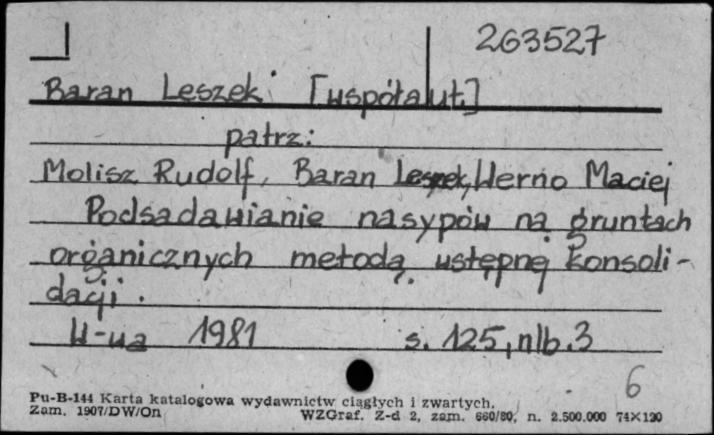 263527
Baran Leszek [współaut.]
patrz:
Molisz Rudolf, Baran Leszek, Werno Maciej
Podsadawianie nasypów na gruntach
organicznych metodą wstępnej konsoli-
dacji.
W-wa 1981 s. 125, nlb. 3
6
Pu-B-144 Karta katalogowa wydawnictw ciągłych i zwartych.
Zam. 1907/DW/On WZGraf. Z-d 2, zam. 660/80, n. 2.500.000 74X120